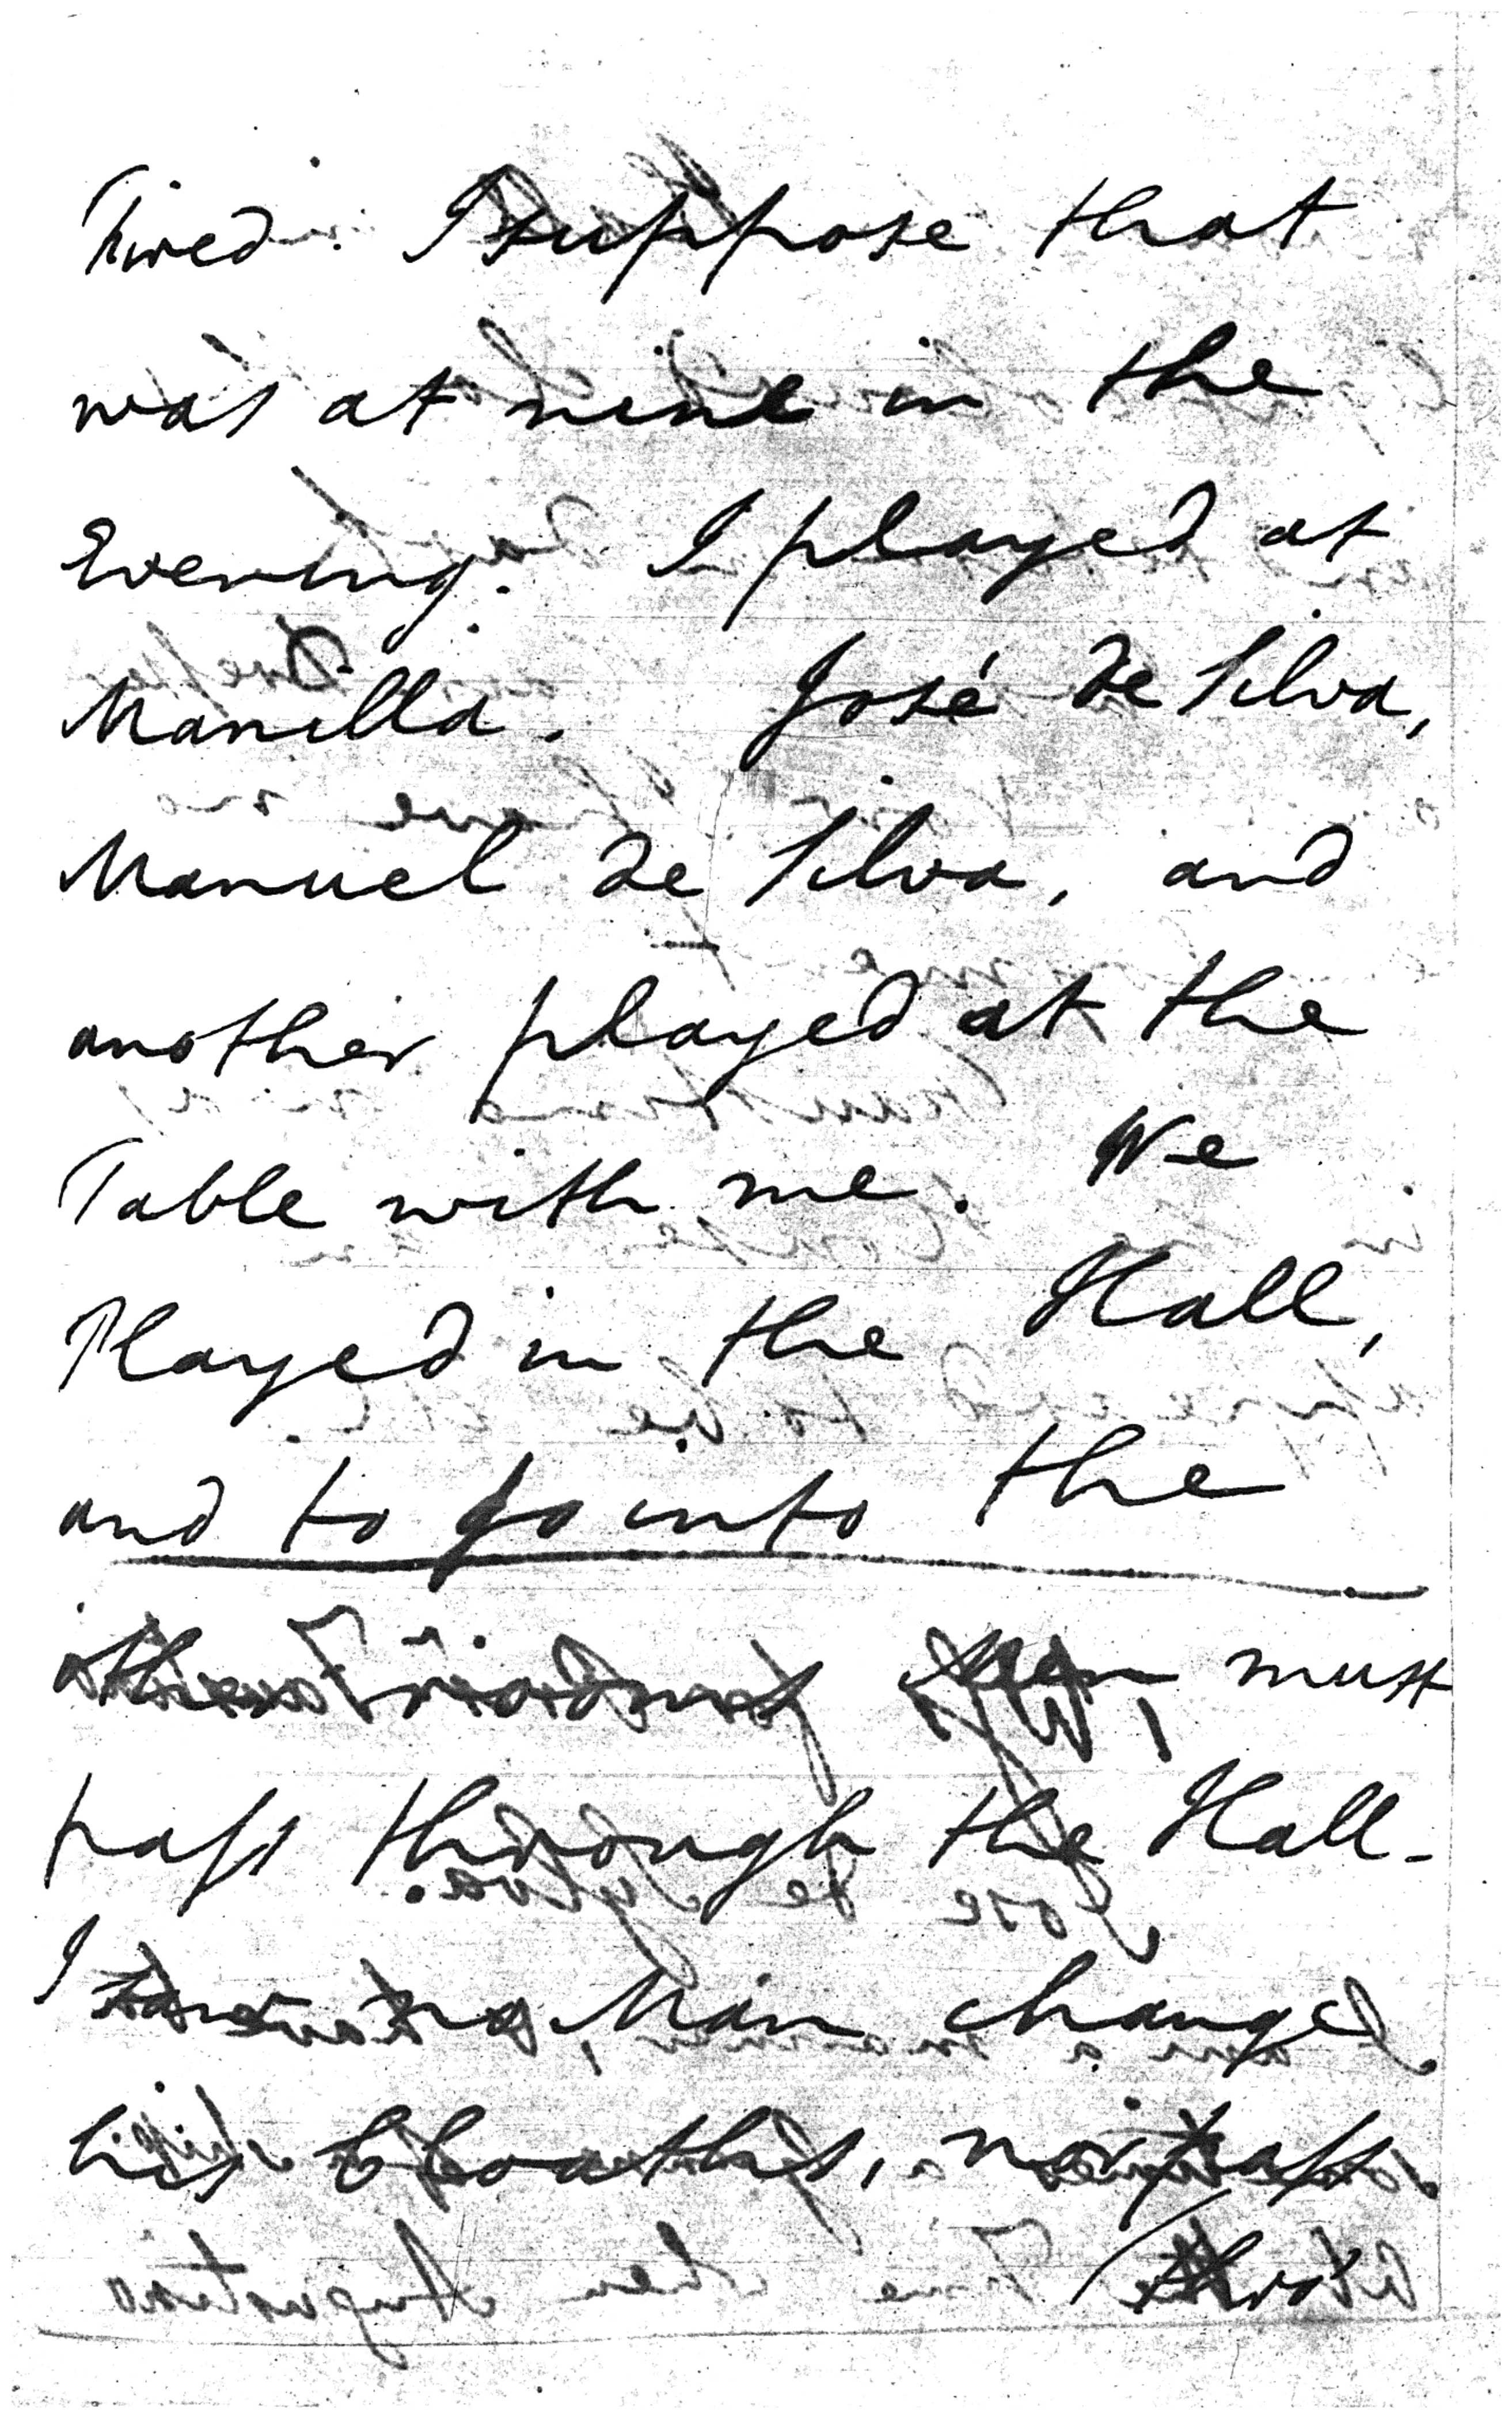 Tired. I suppose that
was at nine in the
Evening. I played at
Manilla. José de Silva,
Manuel de Silva, and
another played at the
Table with me. We
Played in the Hall,
and to go into the
other must
pass through the Hall.
I no Man change
his Cloaths, nor pass
thro'